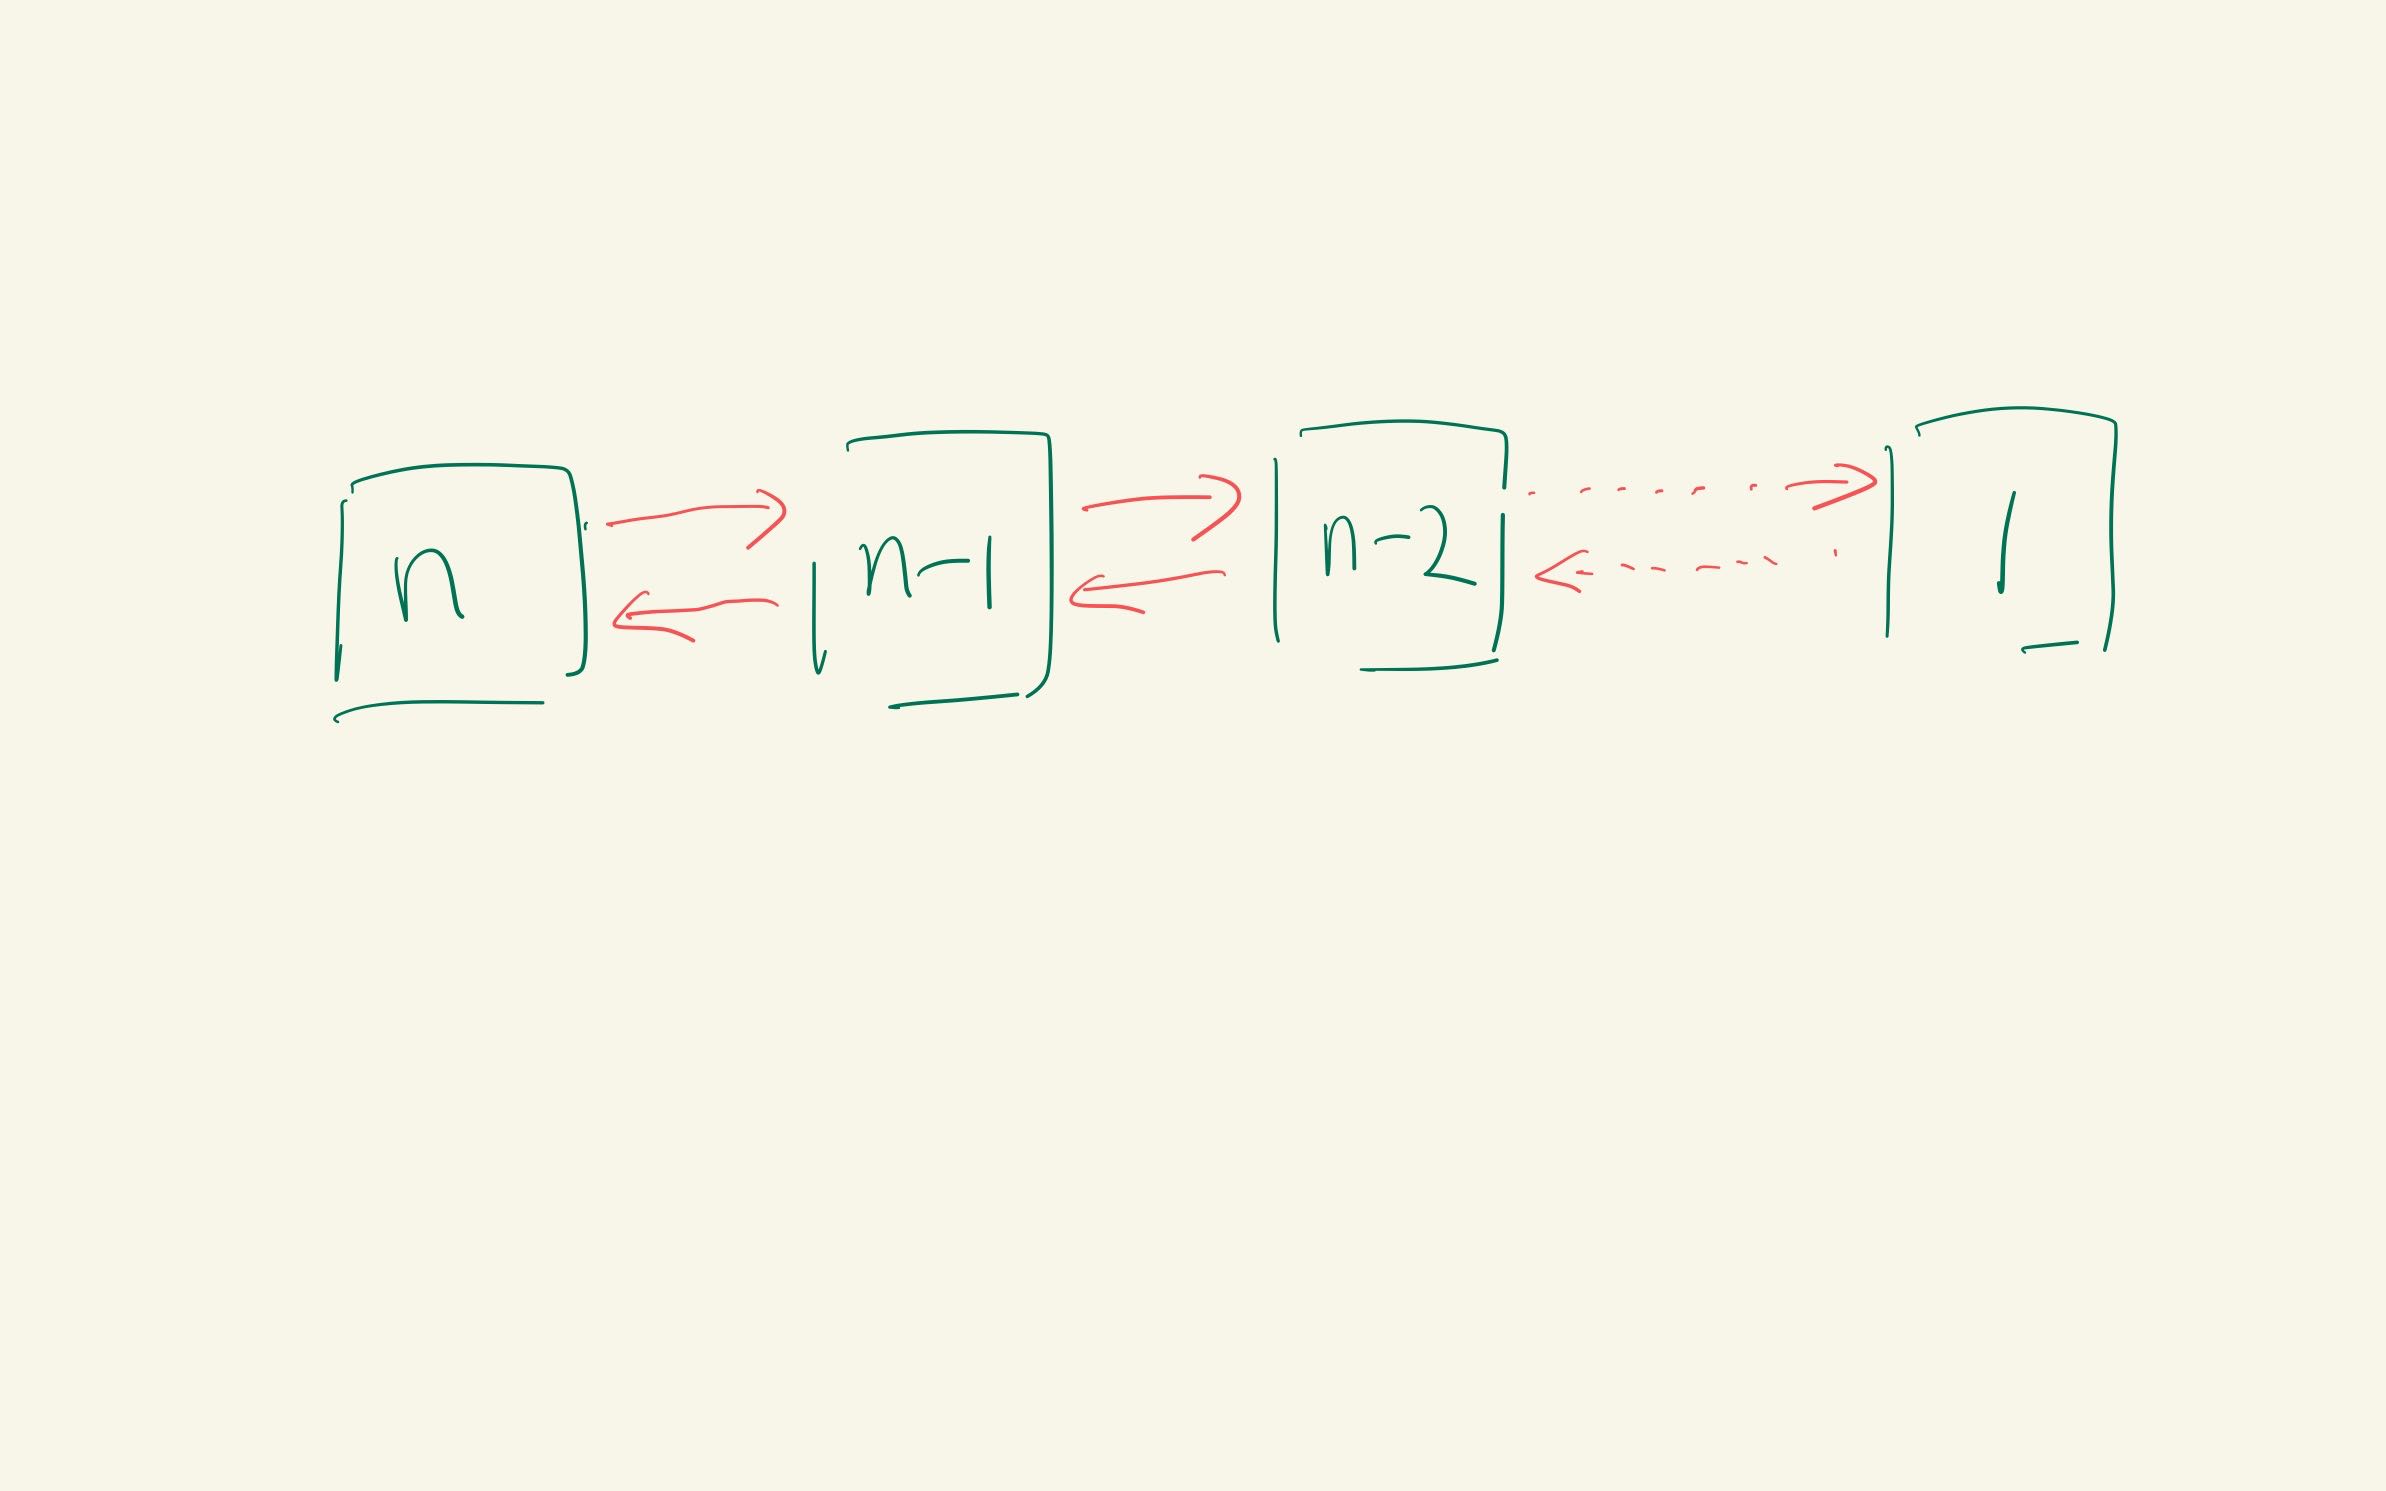 n n-1 n-2 1